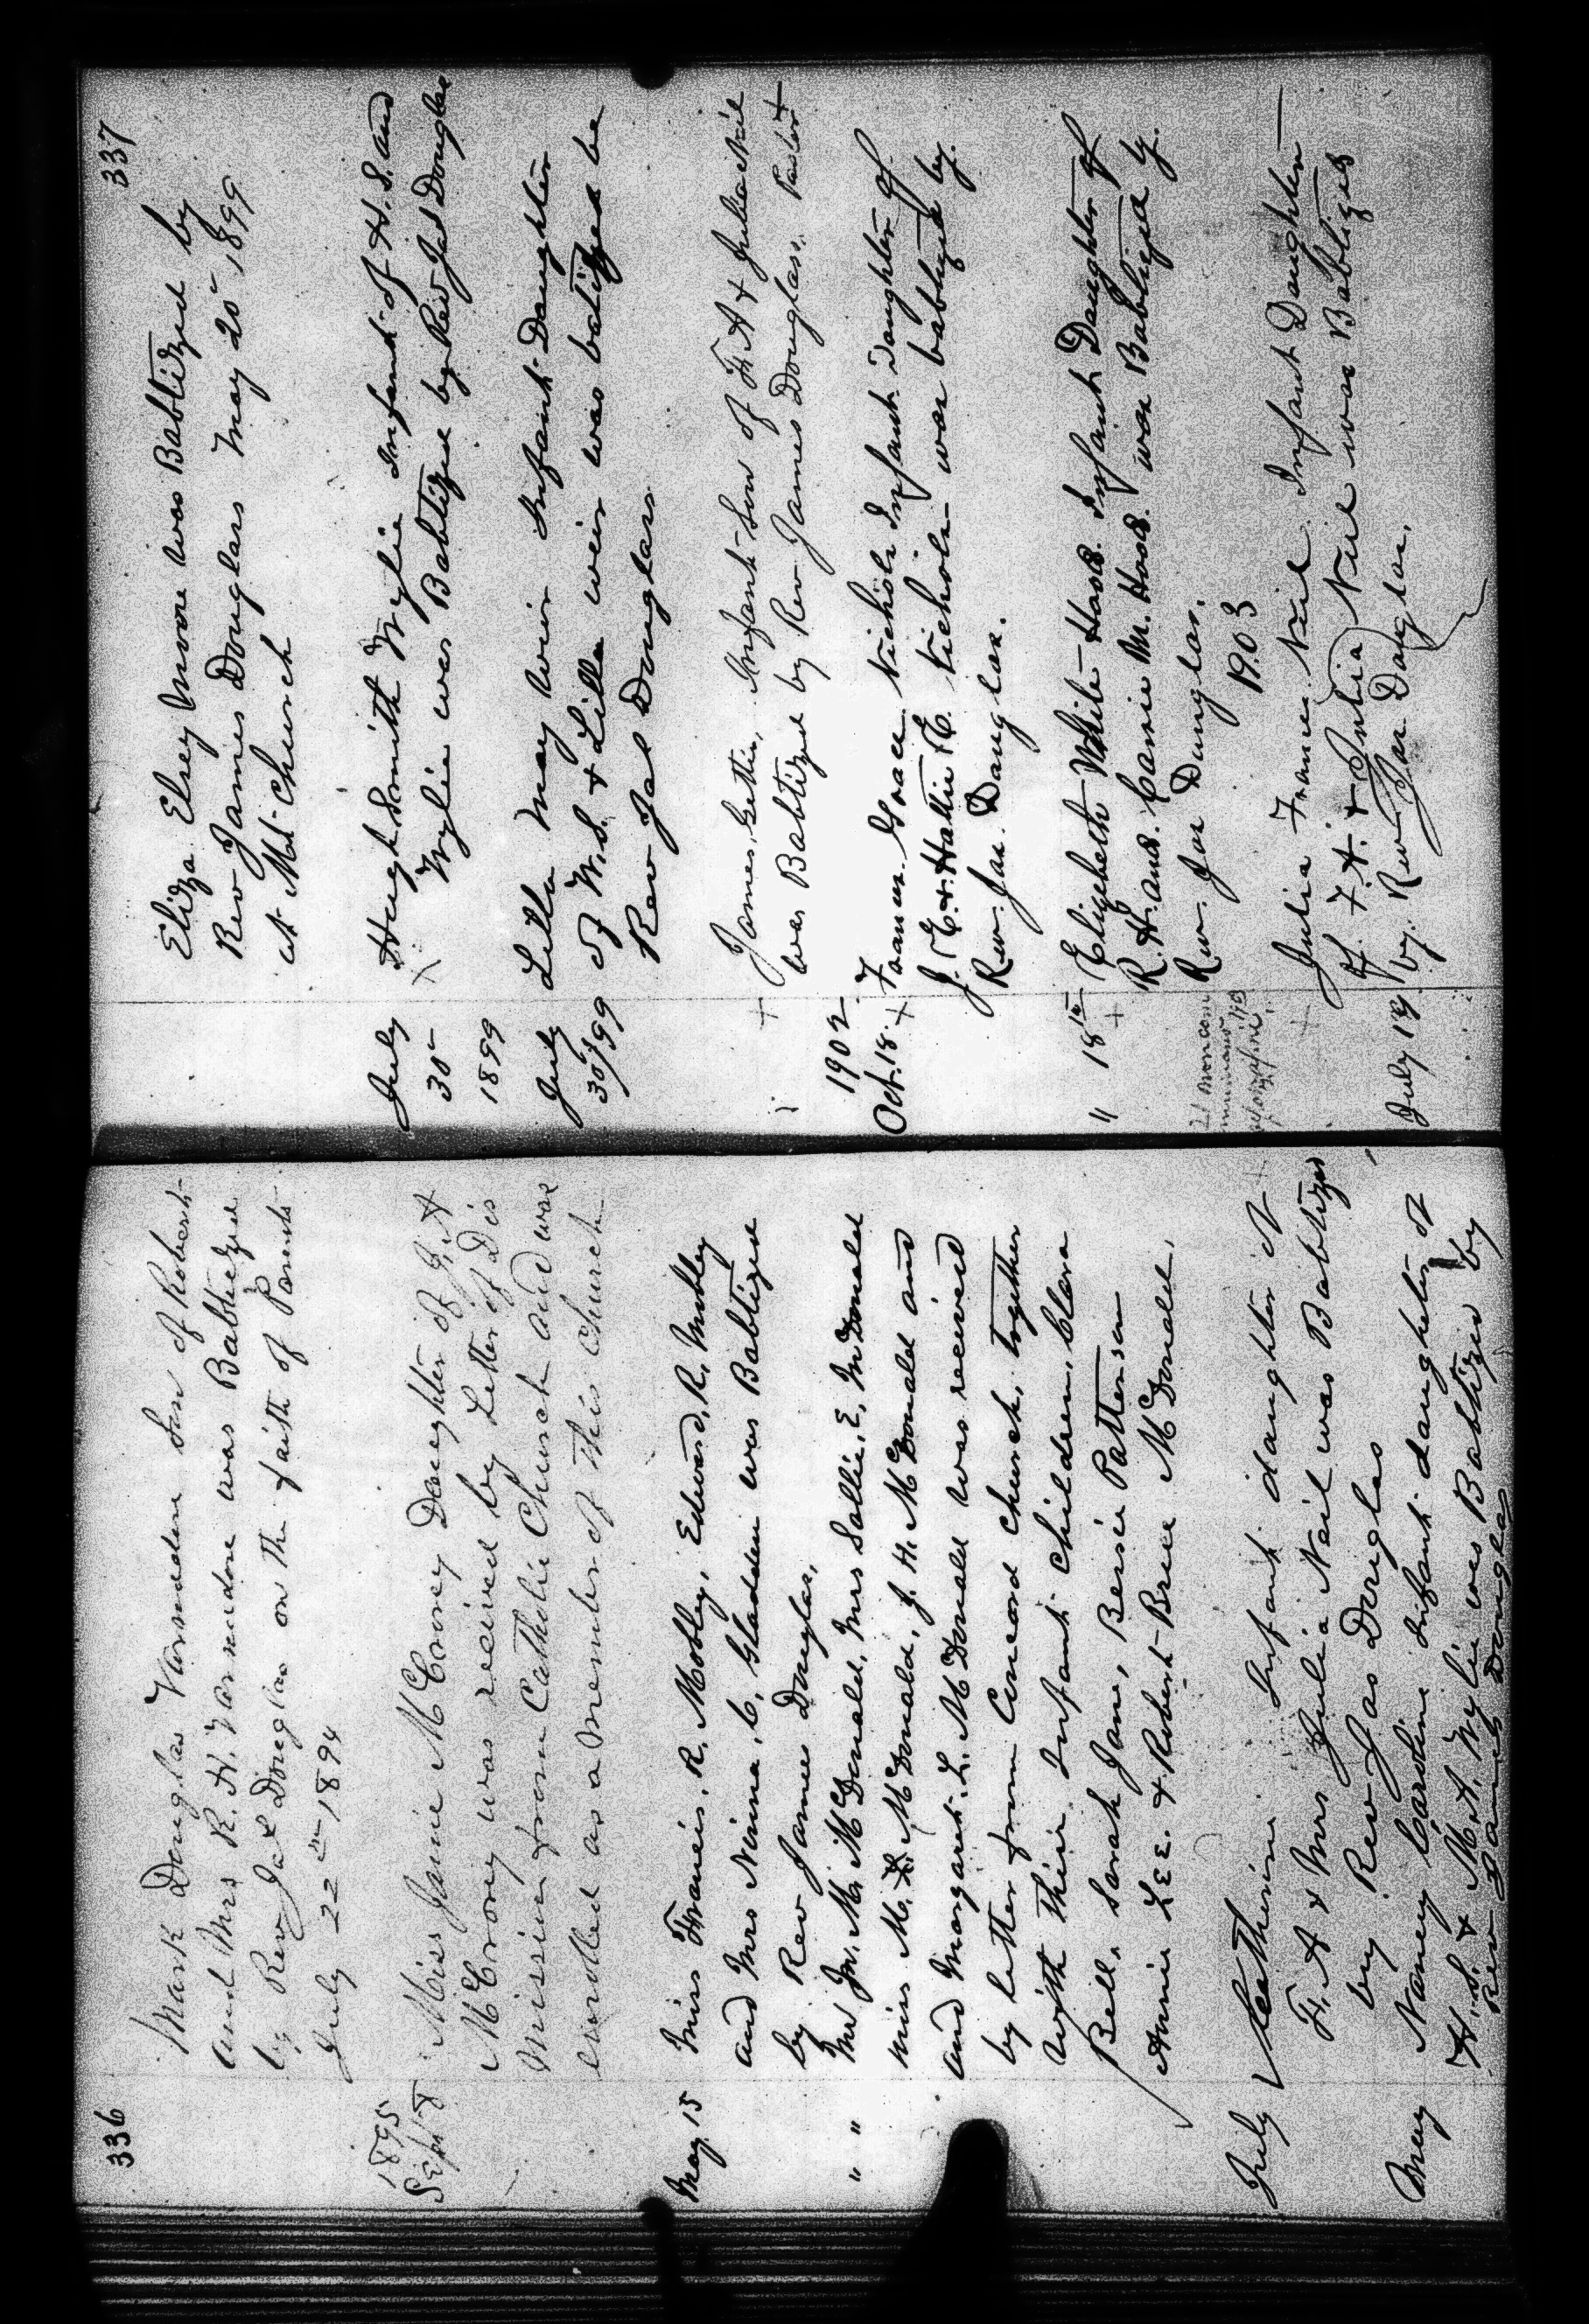 336
Mark Douglas Varnadore Son of Robert
and Mrs R. H. Varnadore was Babtidzed
by Rev Jas Douglas on the faith of Parents
July 22nd 1894
1895
Sept 8 Miss Janie McCrorey Daughter of J. A
McCrorey was received by Letter of Dis
mission from Catholic Church and was
enrolled as a member of this church
May 15 Miss Francis. R. Mobley, Edward. R. Mobley
and Mrs Ninna. C. Gladden was Babtized
by Rev James Douglas.
" " Mr M. McDonald, Mrs Sallie. E. McDonald
miss M. L. McDonald, J. H. McDonald and
and Margaret. L. McDonald was received
by letter from Concord Church, together
with their Infant Children, Clara
Bell, Sarah Jane, Bessie Patterson
Annie Lee. & Robert Brice McDonald.
July Catherine Infant daughter of +
F. A & Mrs Julia Neil was Babtized
by Rev Jas Douglas
May Nancy Caroline Infant daughter of
H. S. & M. A. Wylie was Babtized by
Rev James Douglas
337
Elidza Elsey Moore was Babtidzed by
Rev James Douglass May 20 1899
at Mt Church
July Hugh Smith Wylie Infant of H. S. and
30 X Wylie was Babtized by Rev Jas Douglas
1899
July Lilla May Weir Infant Daughter
30/99 of W. S. & Lilla Weir was babtized be
Rev Jas Douglass
James Gettis, Infant Son of F. A & Julia Neil
+ was Babtized by Rev James Douglass. Pastor +
1902
Oct. 18. + Frances Grace Nichols Infant daughter of
J. E. & Hattie E. Nichols was babtized by.
Rev. Jas. Douglas.
" 18th Elizabeth White Hood. Infant Daughter of
+ R. H. and. Carrie M. Hood. was Babtized by.
Rev. Jas Douglas.
21 non com
1903
+ Julia Frances Neil Infant Daughter
of F. A. & (Julia) Neil was Babtized
July 19. by. Rev Jas Douglas.